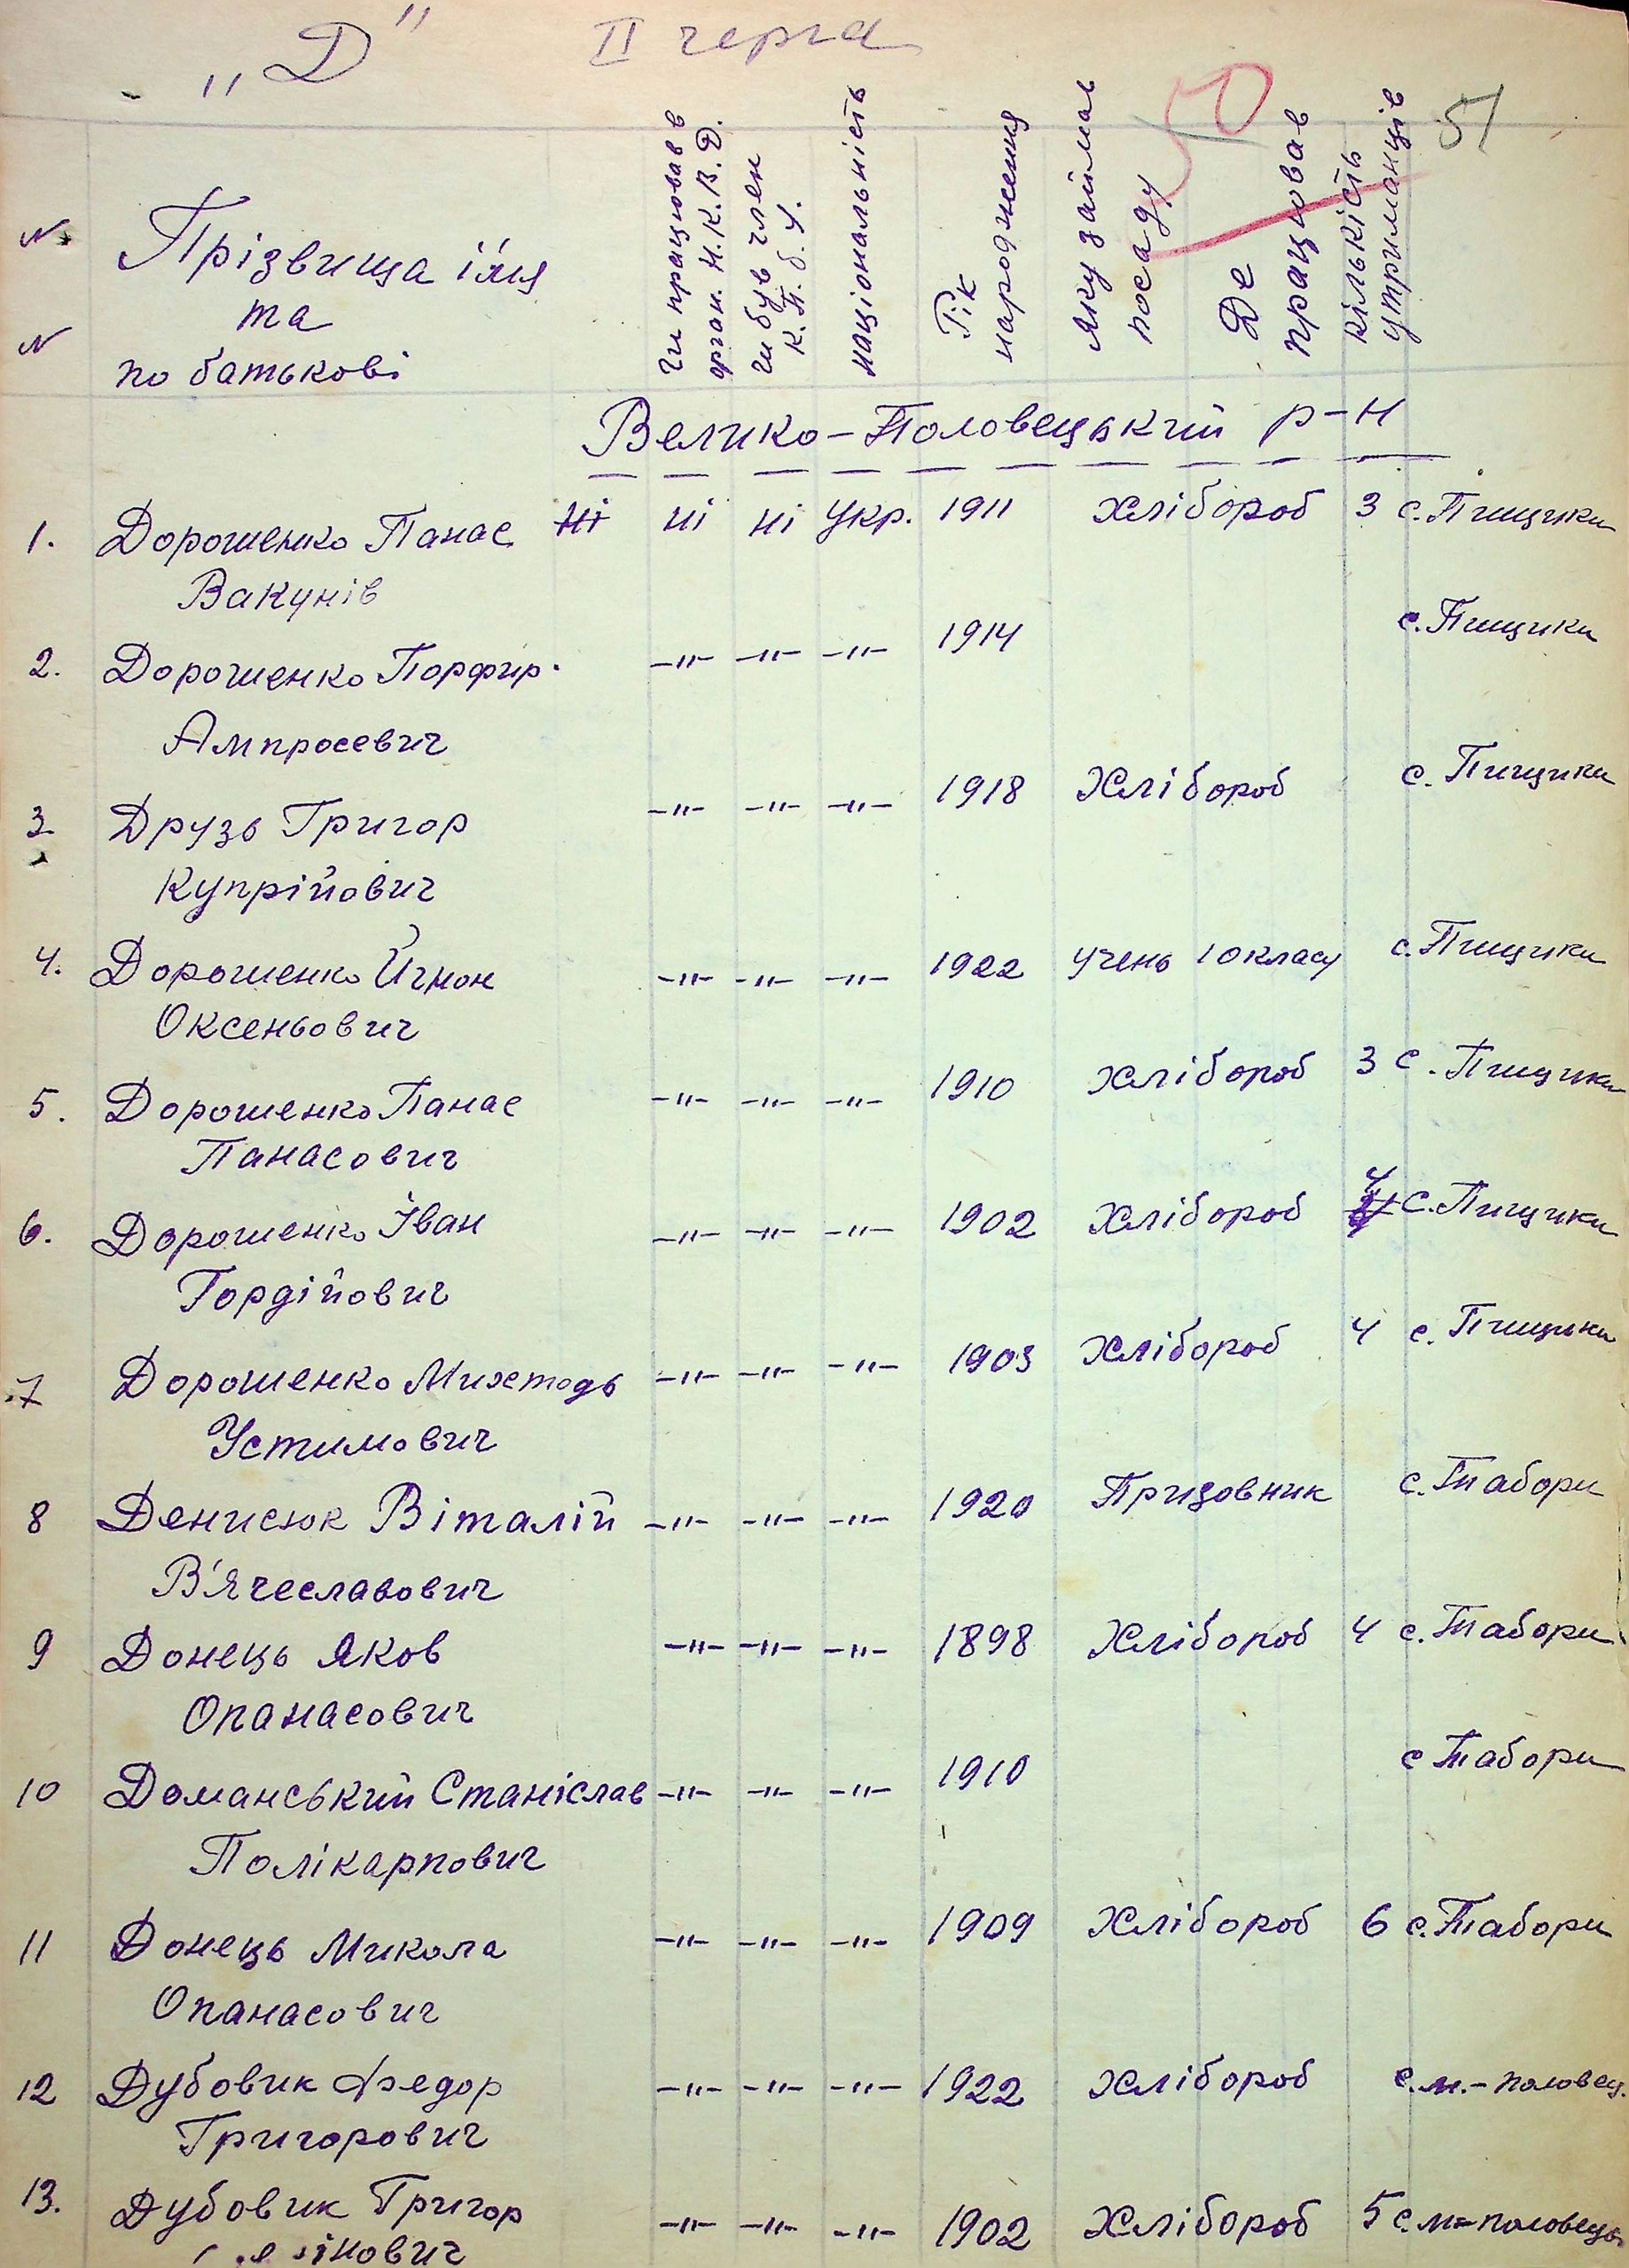 „Д" II черга
51
№ Прізвища ім'я
та
№ по батькові
Чи працював в
орган. Н.К.В.Д.
Чи був член
К.П.б.У.
національність
Рік
народження
Яку займав
посаду
Де
працював
кількість
утриманців
Велико-Половецький р-н
1. Дорошенко Панас ні ні ні Укр. 1911 Хлібороб 3 с. Пищики
Вакунів
2. Дорошенко Порфир. -"- -"- -"- 1914 с. Пищики
Ампросевич
3 Друзь Григор -"- -"- -"- 1918 Хлібороб с. Пищики
Купрійович
4. Дорошенко -"- -"- -"- 1922 учень 10 класу с. Пищики
Оксеньович
5. Дорошенко Панас -"- -"- -"- 1910 Хлібороб 3 с. Пищики
Панасович
6. Дорошенко Іван -"- -"- -"- 1902 Хлібороб 4 с. Пищики
Гордійович
7 Дорошенко Михтодь -"- -"- -"- 1903 Хлібороб 4 с. Пищики
Устимович
8 Денисюк Віталій -"- -"- -"- 1920 Призовник с. Табори
В'ячеславович
9 Донець Яков -"- -"- -"- 1898 Хлібороб 4 с. Табори
Опанасович
10 Доманський Станіслав -"- -"- -"- 1910 с Табори
Полікарпович
11 Донець Микола -"- -"- -"- 1909 Хлібороб 6 с. Табори
Опанасович
12 Дубовик Федор -"- -"- -"- 1922 Хлібороб с. м.-половец.
Григорович
13. Дубовик Григор -"- -"- -"- 1902 Хлібороб 5 с. м-половець